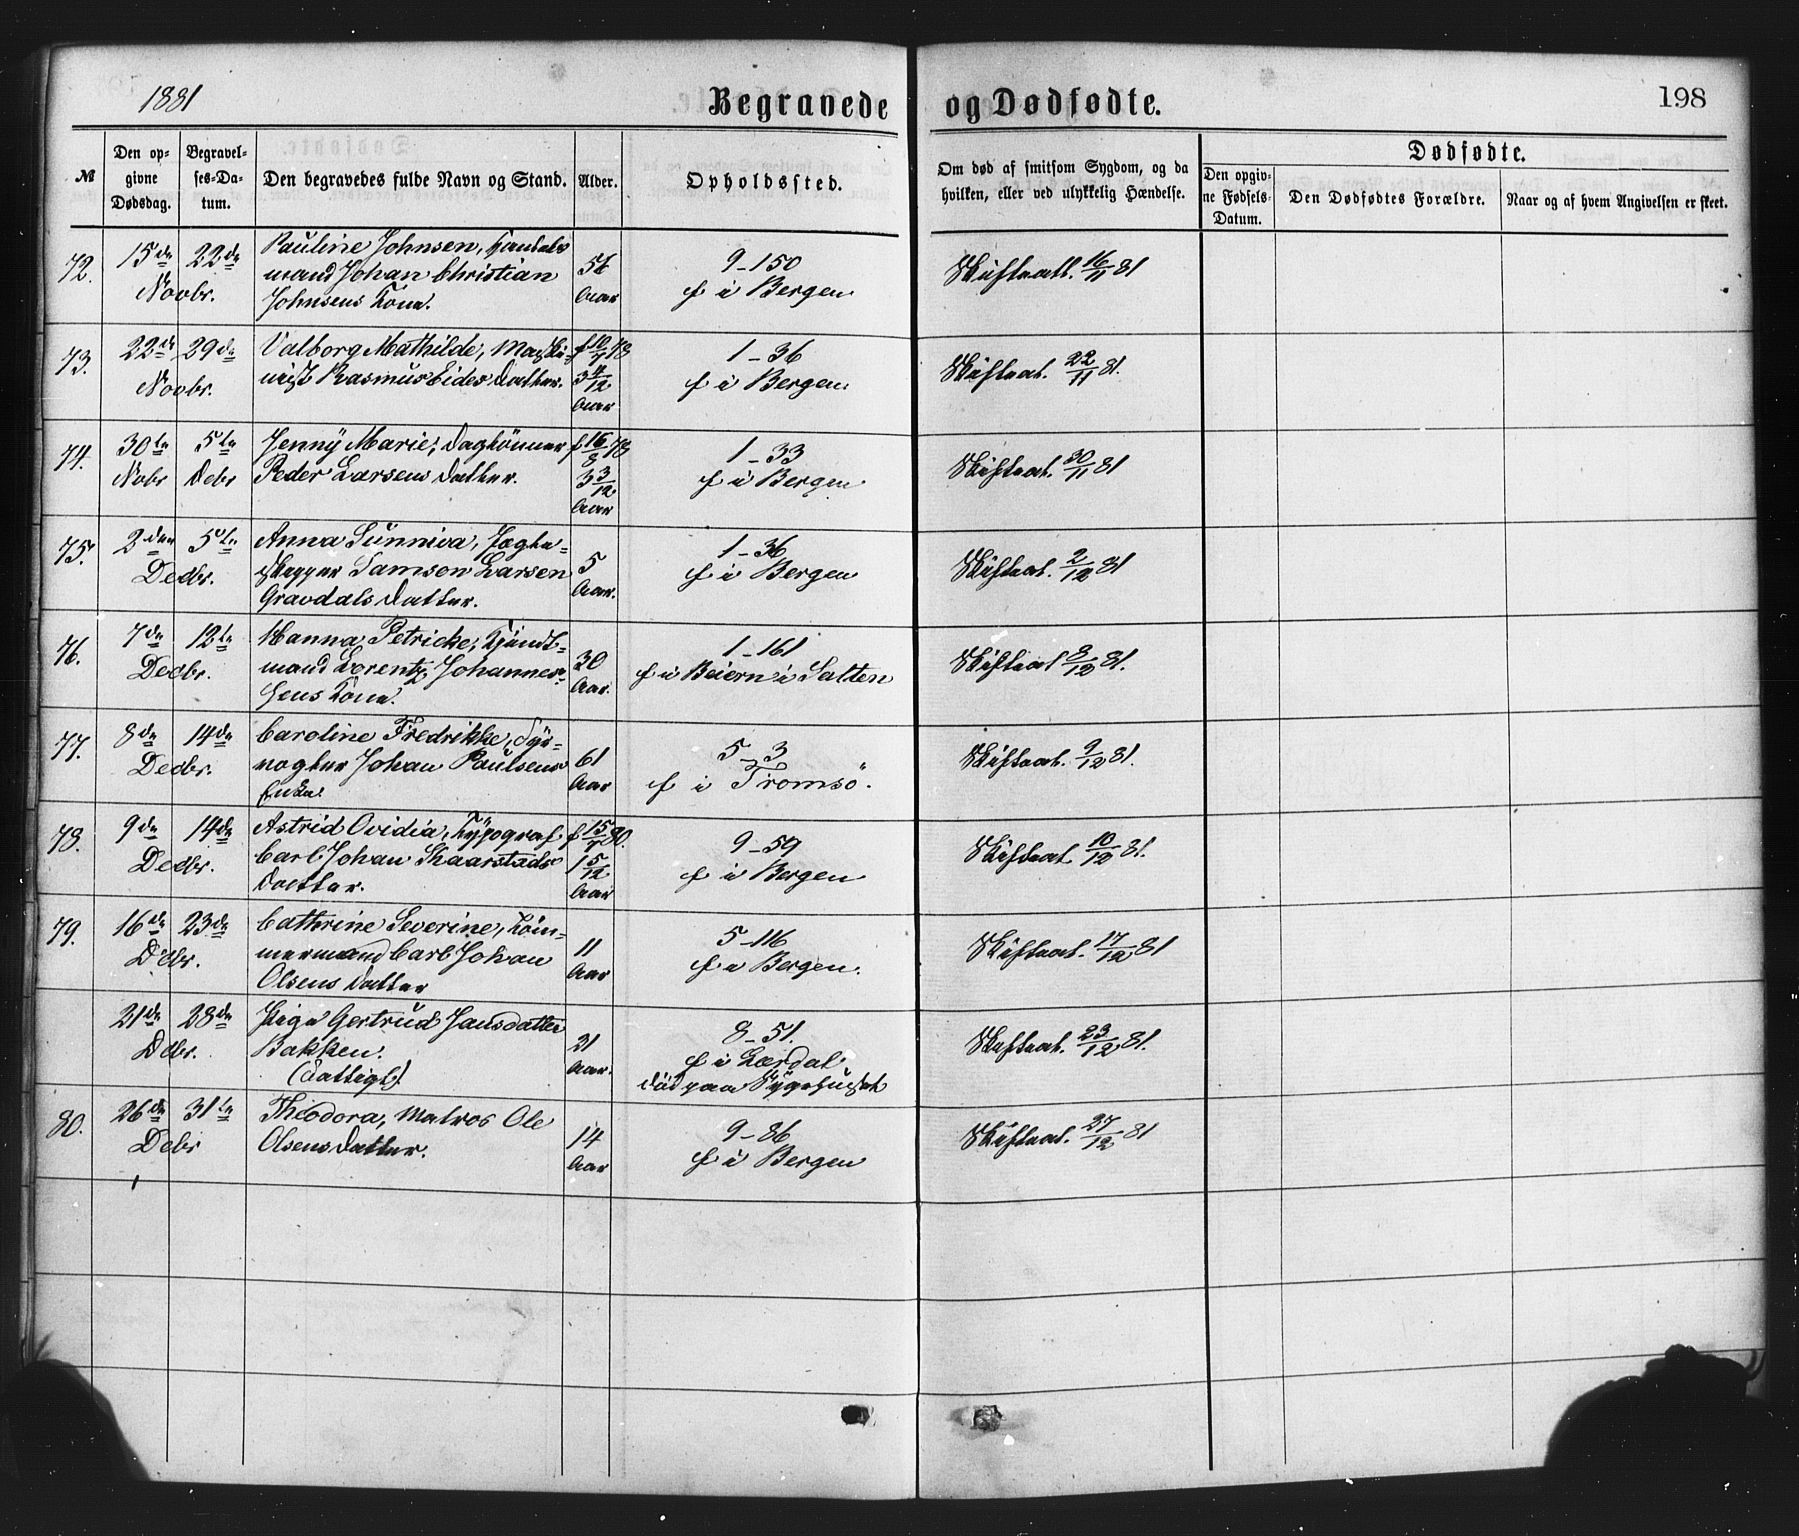 1881
Begravede og Dødfødte.
198
№
Den opgivne Dødsdag.
Begravelses-Datum.
Den begravedes fulde Navn og Stand.
Alder.
Opholdssted.
Om død af smitsom Sygdom, og da hvilken, eller ved ulykkelig Hændelse.
Dødfødte.
Den opgivne Fødsels-Datum.
Den Dødfødtes Forældre.
Naar og af hvem Angivelsen er skeet.
72. 15de 22de Pauline Johnsen, Handels 9-150
Novbr. mand Johan Christian Aar f i Bergen Skifteatt. 16/11 81
Johnsens Kone.
73. 22de 29de Valborg Mathilde, Maski- f 10/7 78 1-36
Novbr. nist Rasmus Eides Datter. 3 4/12 Aar f i Bergen. Skifteat. 22/11 81.
74. 30te 5te Jenny Marie, Daglönner f 16/8 78 1-33
Nobr Debr Peder Larsens Datter. 3 3/12 Aar f i Bergen Skifteat. 30/11 81
75. 2den 5te Anna Sunniva, Jægte- 1-36
Decbr. skipper Samson Larsen 5 Aar. f i Bergen Skifteat. 2/12 81
Gravdals Datter.
76. 7de 12te Hanna Petricke, 1-161
Decbr. mand Lorentz Johannes- 30 Aar. f i Beiern i Salten Skifteat 8/12 81.
sens Kone.
77. 8de 14de Caroline Fredrikke, Fyr- 5-3
Decbr. vogter Johan Paulsens 61 Aar f i Tromsö. Skifteat. 9/12 81.
Enke.
78. 9de 14de Astrid Ovidia, Typograf f 15/7 80. 9-59
Decbr. Carl Johan Skaarstads 1 5/12 Aar f i Bergen Skifteat. 10/12 81.
Datter.
79. 16de 23de Cathrine Severine, Töm- 5-116
Debr. mermand Carl Johan 11 Aar f i Bergen. Skifteat. 17/12 81
Olsens Datter
21de 28de Pige Gertrud Jansdatter 8-51.
Debr. Bakken. 21 Aar. f i Lærdal Skifteat. 23/12 81.
(Fattigl.) död paa Sygehuset
80. 26de 31te Theodora, Matros Ole 9-86
Debr Olsens Datter. 14 Aar f i Bergen Skifteat. 27/12 81